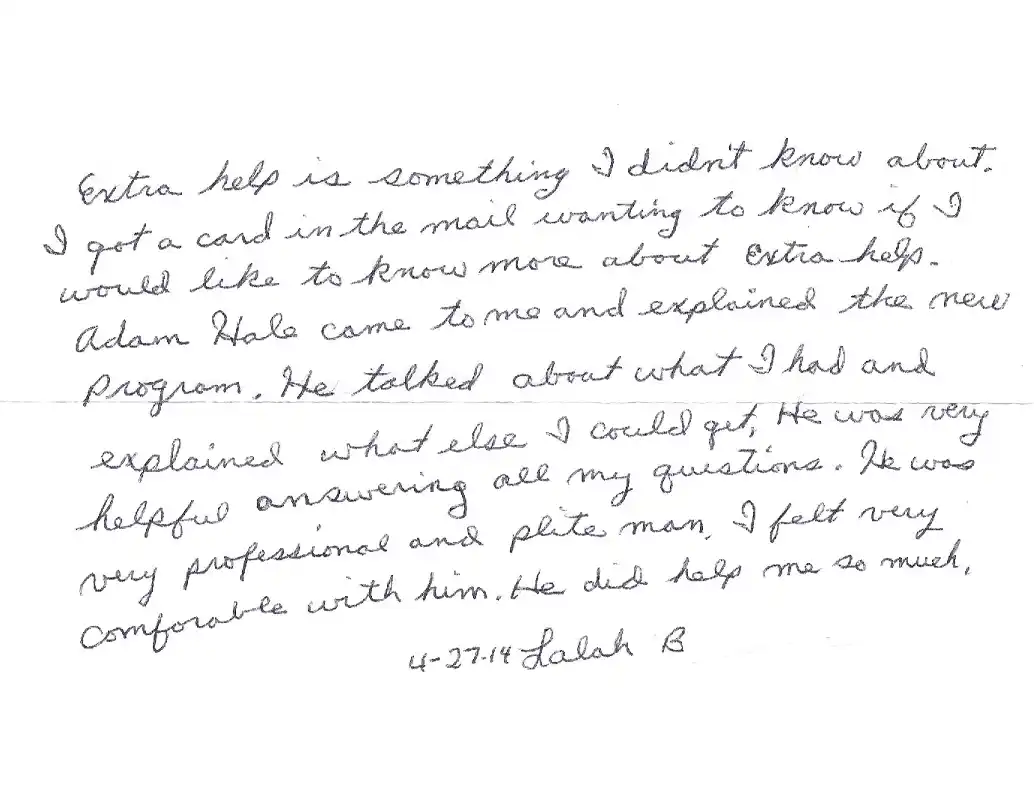 Extra help is something I didn't know about.
I got a card in the mail wanting to know if I
would like to know more about Extra help.
Adam Hale came to me and explained the new
program. He talked about what I had and
explained what else I could get, He was very
helpful answering all my questions. He was
very professional and plite man, I felt very
comforable with him. He did help me so much,
4-27-14 Lalah B